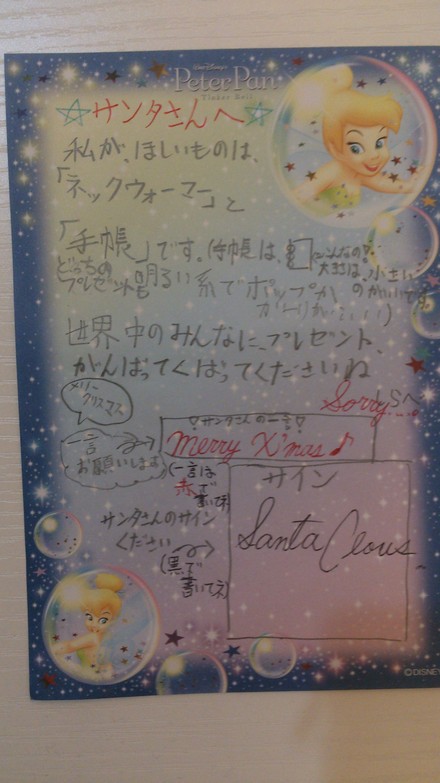 WALT DISNEY'S
Peter Pan
Tinker Bell
☆サンタさんへ☆
私が、ほしいものは、
「ネックウォーマー」と
「手帳」です。(手帳は、こんなの?
大きさは、小さい
のがいいです。
どっちの
プレゼントも
明るい系でポップか
世界中のみんなに、プレゼント、
がんばってくばってくださいね
Sorry....。
うらへ
メリー
クリスマス
♡サンタさんの一言♡
Merry X'mas♪
一言
お願いします
(一言は
赤で
書いてネ)
サイン
サンタさんのサイン
ください
(黒で
書いてネ)
Santa Cleous
©DISNEY